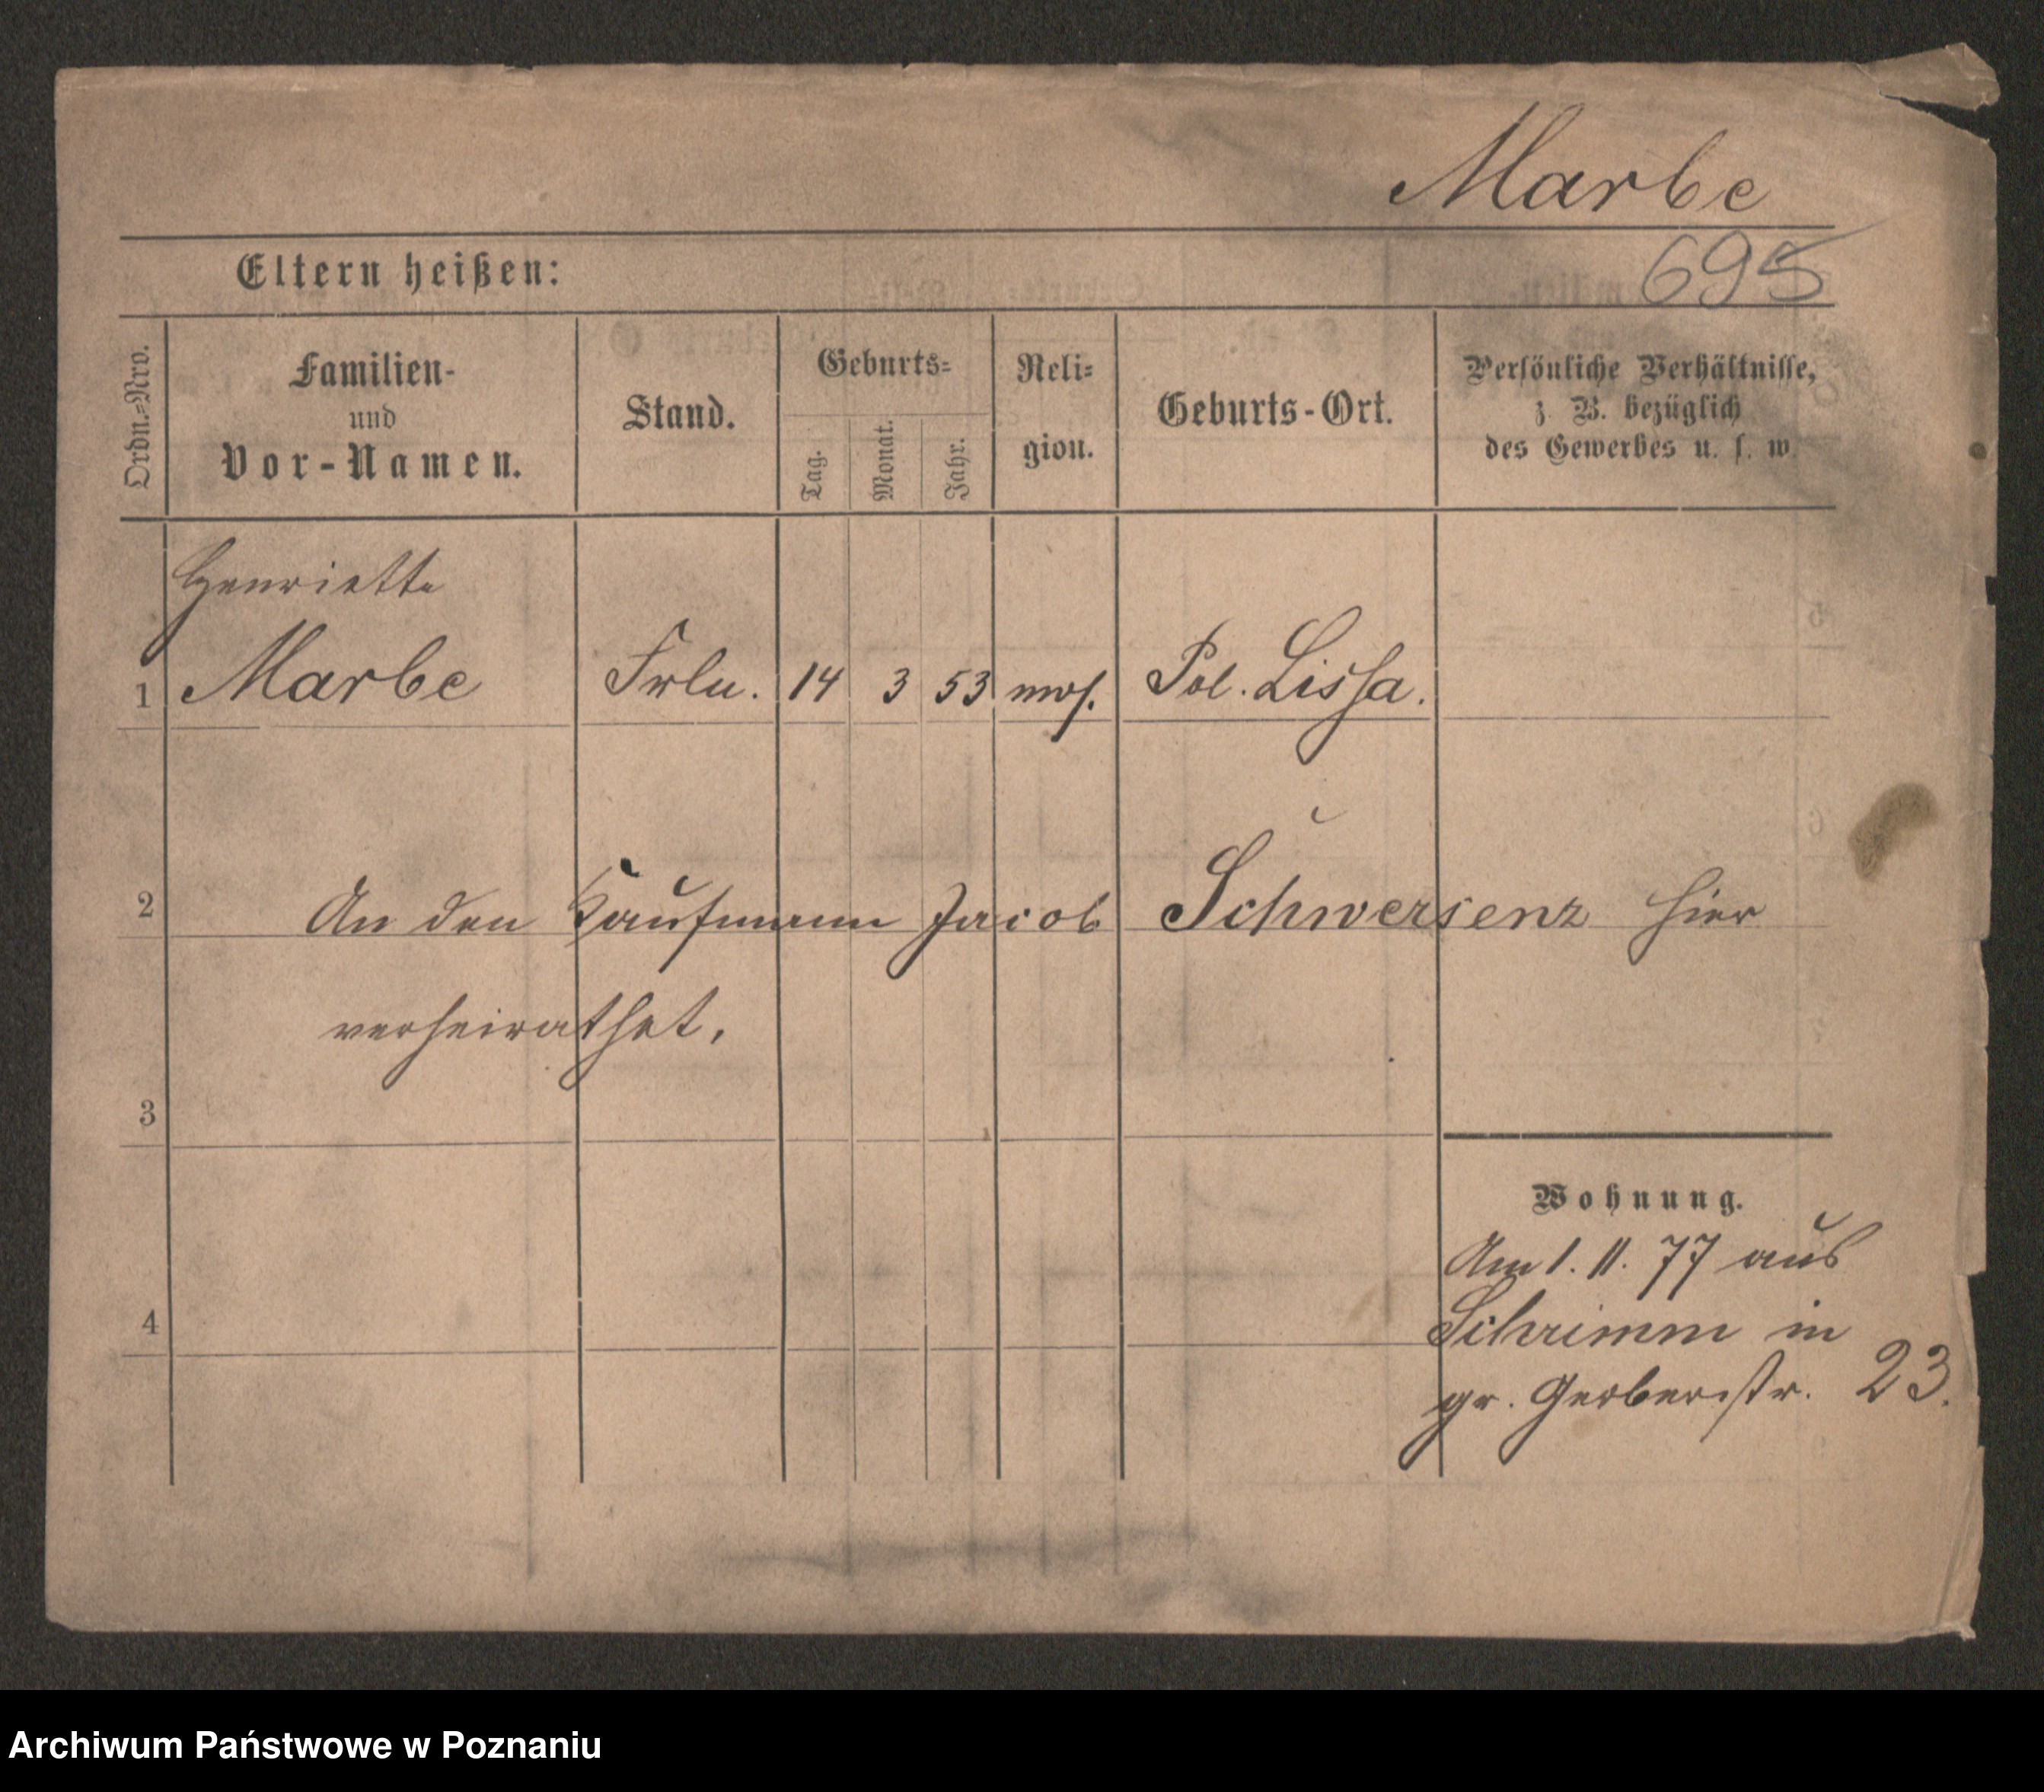 Marbe
695
Eltern heißen:
Ordn.=Nro.
Familien-
und
Vor-Namen.
Stand.
Geburts=
Tag.
Monat.
Jahr.
Reli=
gion.
Geburts-Ort.
Persönliche Verhältnisse,
z. B. bezüglich
des Gewerbes u. s. w.
Henriette
1 Marbe Frln. 14 3 53 mos. Pol. Lissa.
2 An den Kaufmann Jacob Schwersenz hier
verheirathet.
3
Wohnung.
Am 1. 11. 77 aus
4 Schrimm in
gr. Gerberstr. 23.
Archiwum Państwowe w Poznaniu